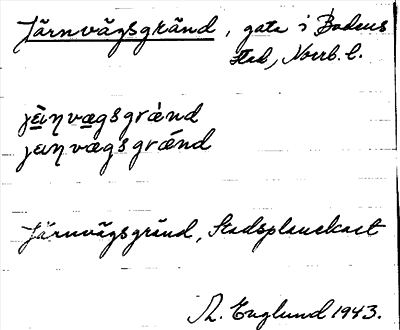 Järnvägsgränd, gata i Bodens
stad, Norrb. l.
jèꞃvægsgrænd
jæꞃvægsgrǽnd
Järnvägsgränd, Stadsplanekart
R. Englund 1943.